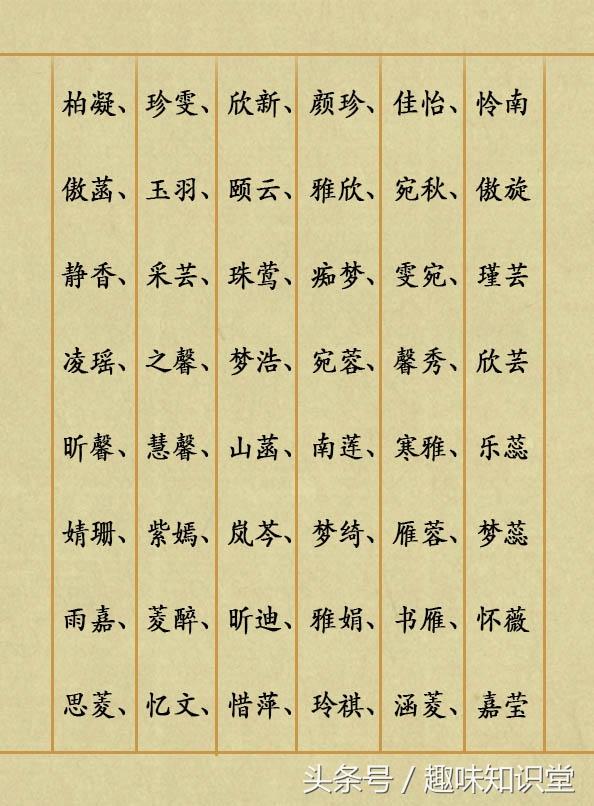 柏凝、珍雯、欣新、颜珍、佳怡、怜南
傲菡、玉羽、颐云、雅欣、宛秋、傲旋
静香、采芸、珠莺、痴梦、雯宛、瑾芸
凌瑶、之馨、梦浩、宛蓉、馨秀、欣芸
昕馨、慧馨、山菡、南莲、寒雅、乐蕊
婧珊、紫嫣、岚芩、梦绮、雁蓉、梦蕊
雨嘉、菱醉、昕迪、雅娟、书雁、怀薇
思菱、忆文、惜萍、玲祺、涵菱、嘉莹
头条号 / 趣味知识堂